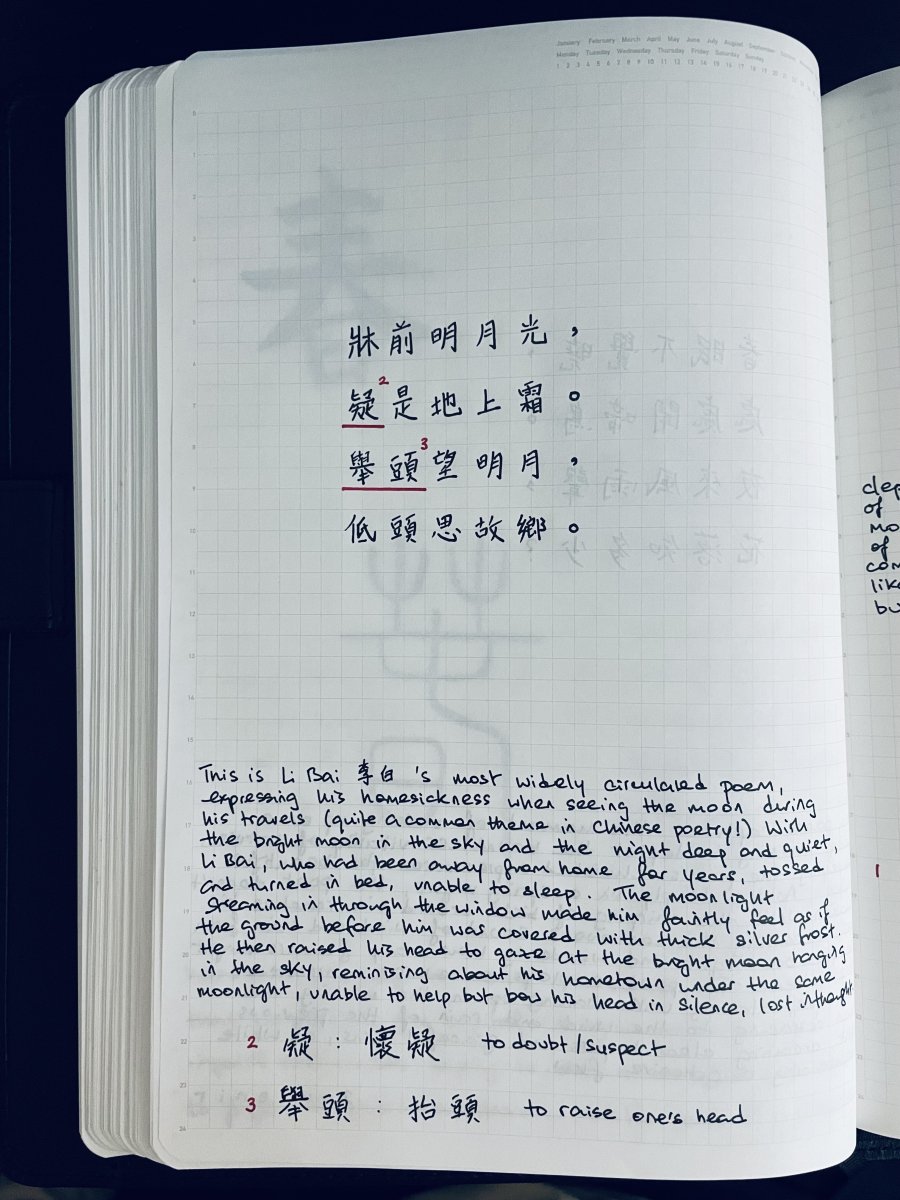 January February March April May June July August September
Monday Tuesday Wednesday Thursday Friday Saturday Sunday
1 2 3 4 5 6 7 8 9 10 11 12 13 14 15 16 17 18 19 20
牀前明月光，
疑²是地上霜。
舉頭³望明月，
低頭思故鄉。
This is Li Bai 李白 's most widely circulated poem,
expressing his homesickness when seeing the moon during
his travels (quite a common theme in Chinese poetry!) With
the bright moon in the sky and the night deep and quiet,
Li Bai, who had been away from home for years, tossed
and turned in bed, unable to sleep. The moonlight
streaming in through the window made him faintly feel as if
the ground before him was covered with thick silver frost.
He then raised his head to gaze at the bright moon hanging
in the sky, reminising about his hometown under the same
moonlight, unable to help but bow his head in silence, lost in thought
2 疑：懷疑 to doubt/suspect
3 舉頭：抬頭 to raise one's head
of
of
1